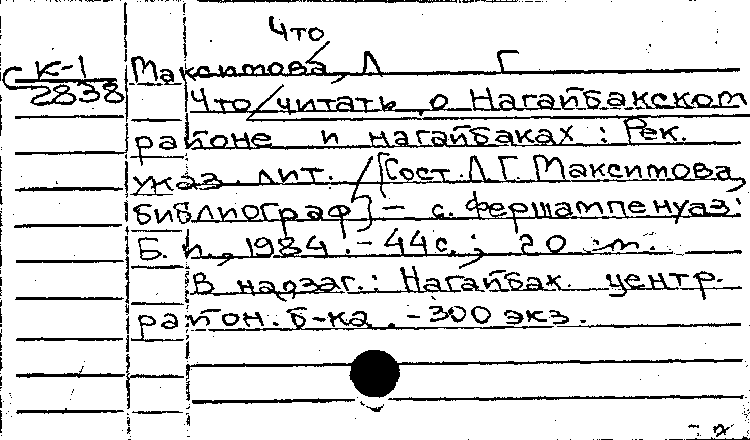 Что
С К-1
2838
Максимова, Л Г
Что/читать о Нагайбакском
районе и нагайбаках : Рек.
указ. лит. /[Сост. Л.Г. Максимова,
библиограф] - с. Фершампенуаз:
Б. и., 1984. - 44с.; 20 см.
В надзаг.: Нагайбак. центр.
район. б-ка. - 300 экз.